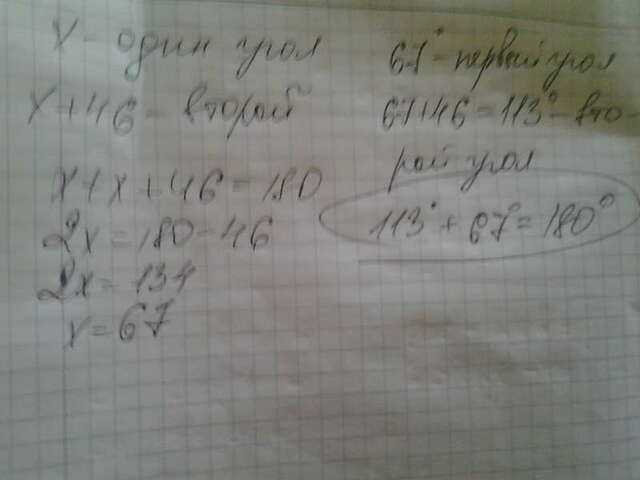 x - один угол
x+46 - второй
x+x+46=180
2x=180-46
2x=134
x=67
67° - первый угол
67+46=113° - вто-
рой угол
113°+67°=180°